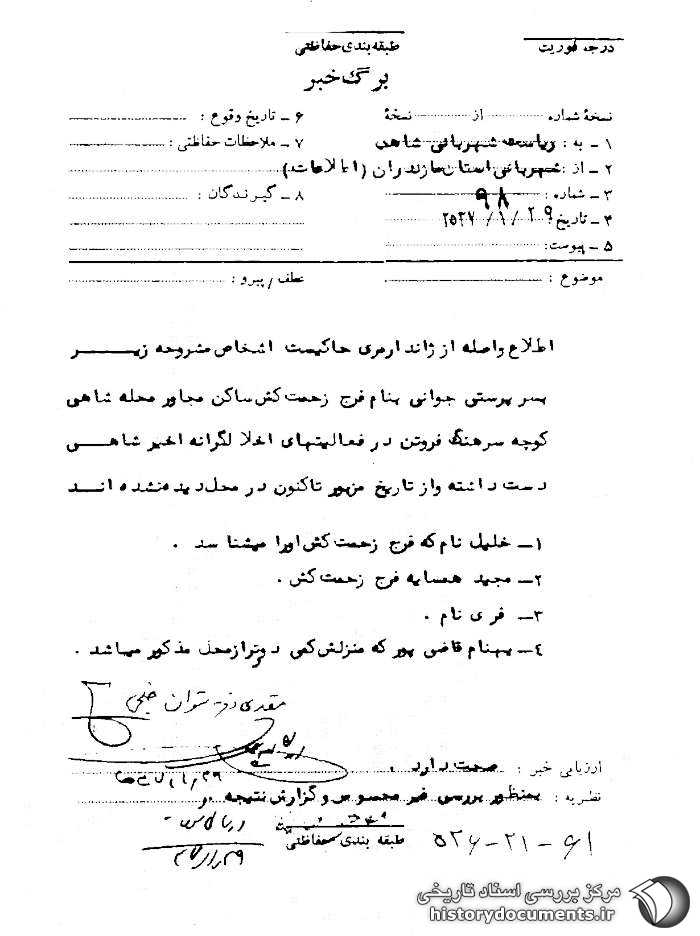 درجه فوریت
طبقه بندی حفاظتی
برگ خبر
نسخهٔ شماره از نسخهٔ
۱ ـ به : ریاست شهربانی شاهی
۲ ـ از : شهربانی استان مازندران (اطلاعات)
۳ ـ شماره : ۹۸
۴ ـ تاریخ ۲۵۳۷/۱/۲۹
۵ ـ پیوست:
۶ ـ تاریخ وقوع :
۷ ـ ملاحظات حفاظتی :
۸ ـ گیرندگان :
موضوع : عطف / پیرو :
اطلاع واصله از ژاندارمری حاکیست اشخاص مشروحه زیــــر
بسر پرستی جوانی بنام فرج زحمت کش ساکن مجاور محله شاهی
کوچه سرهنگ فروتن در فعالیتهای اخلالگرانه اخیر شاهــی
دست داشته واز تاریخ مزبور تاکنون در محل دیده نشده انــد
۱ـ خلیل نام که فرج زحمت کش اورا میشناسد .
۲ـ مجید همسایه فرج زحمت کش .
۳ـ فری نام .
۴ـ بهنام قاضی پور که منزلش کمی دورتر از محل مذکور میباشد .
ارزیابی خبر : صحت دارد .
نظریه : بمنظور بررسی غیر محسوس و گزارش نتیجه
طبقه بندی حفاظتی
۵۲۶-۲۱-۶۱
مرکز بررسی اسناد تاریخی
historydocuments.ir